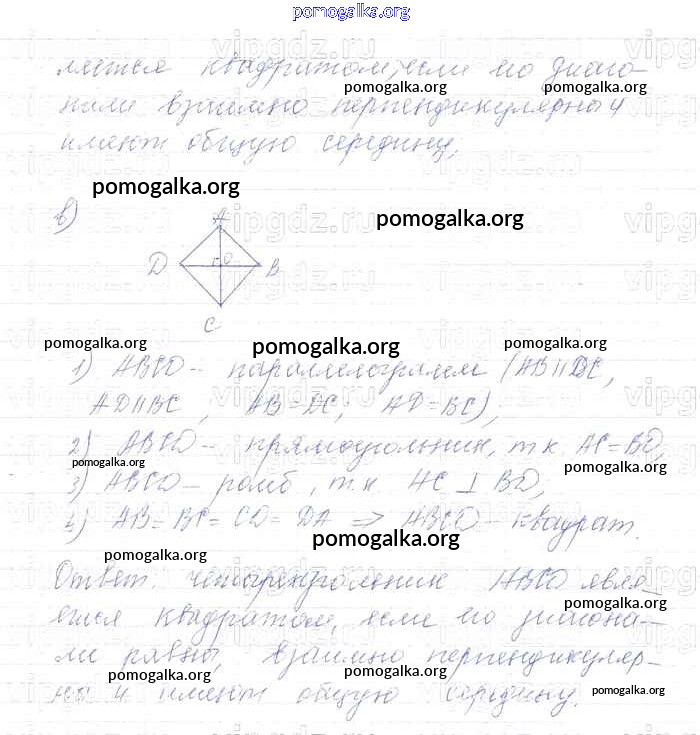 pomogalka.org
ляется квадратом, если его диаго-
нали взаимно перпендикулярны и
имеют общую середину.
pomogalka.org pomogalka.org
pomogalka.org
в)
pomogalka.org
A
D O B
C
pomogalka.org pomogalka.org pomogalka.org
1) ABCD – параллелограмм (AB || DC,
AD || BC, AB = DC, AD = BC),
2) ABCD – прямоугольник, т.к. AC = BD,
pomogalka.org pomogalka.org
3) ABCD – ромб, т.к. AC ⊥ BD,
4) AB = BC = CD = DA => ABCD – квадрат.
pomogalka.org pomogalka.org
Ответ: четырехугольник ABCD явля-
pomogalka.org
ется квадратом, если его диагона-
ли равны, взаимно перпендикуляр-
pomogalka.org pomogalka.org
ны и имеют общую середину.
pomogalka.org